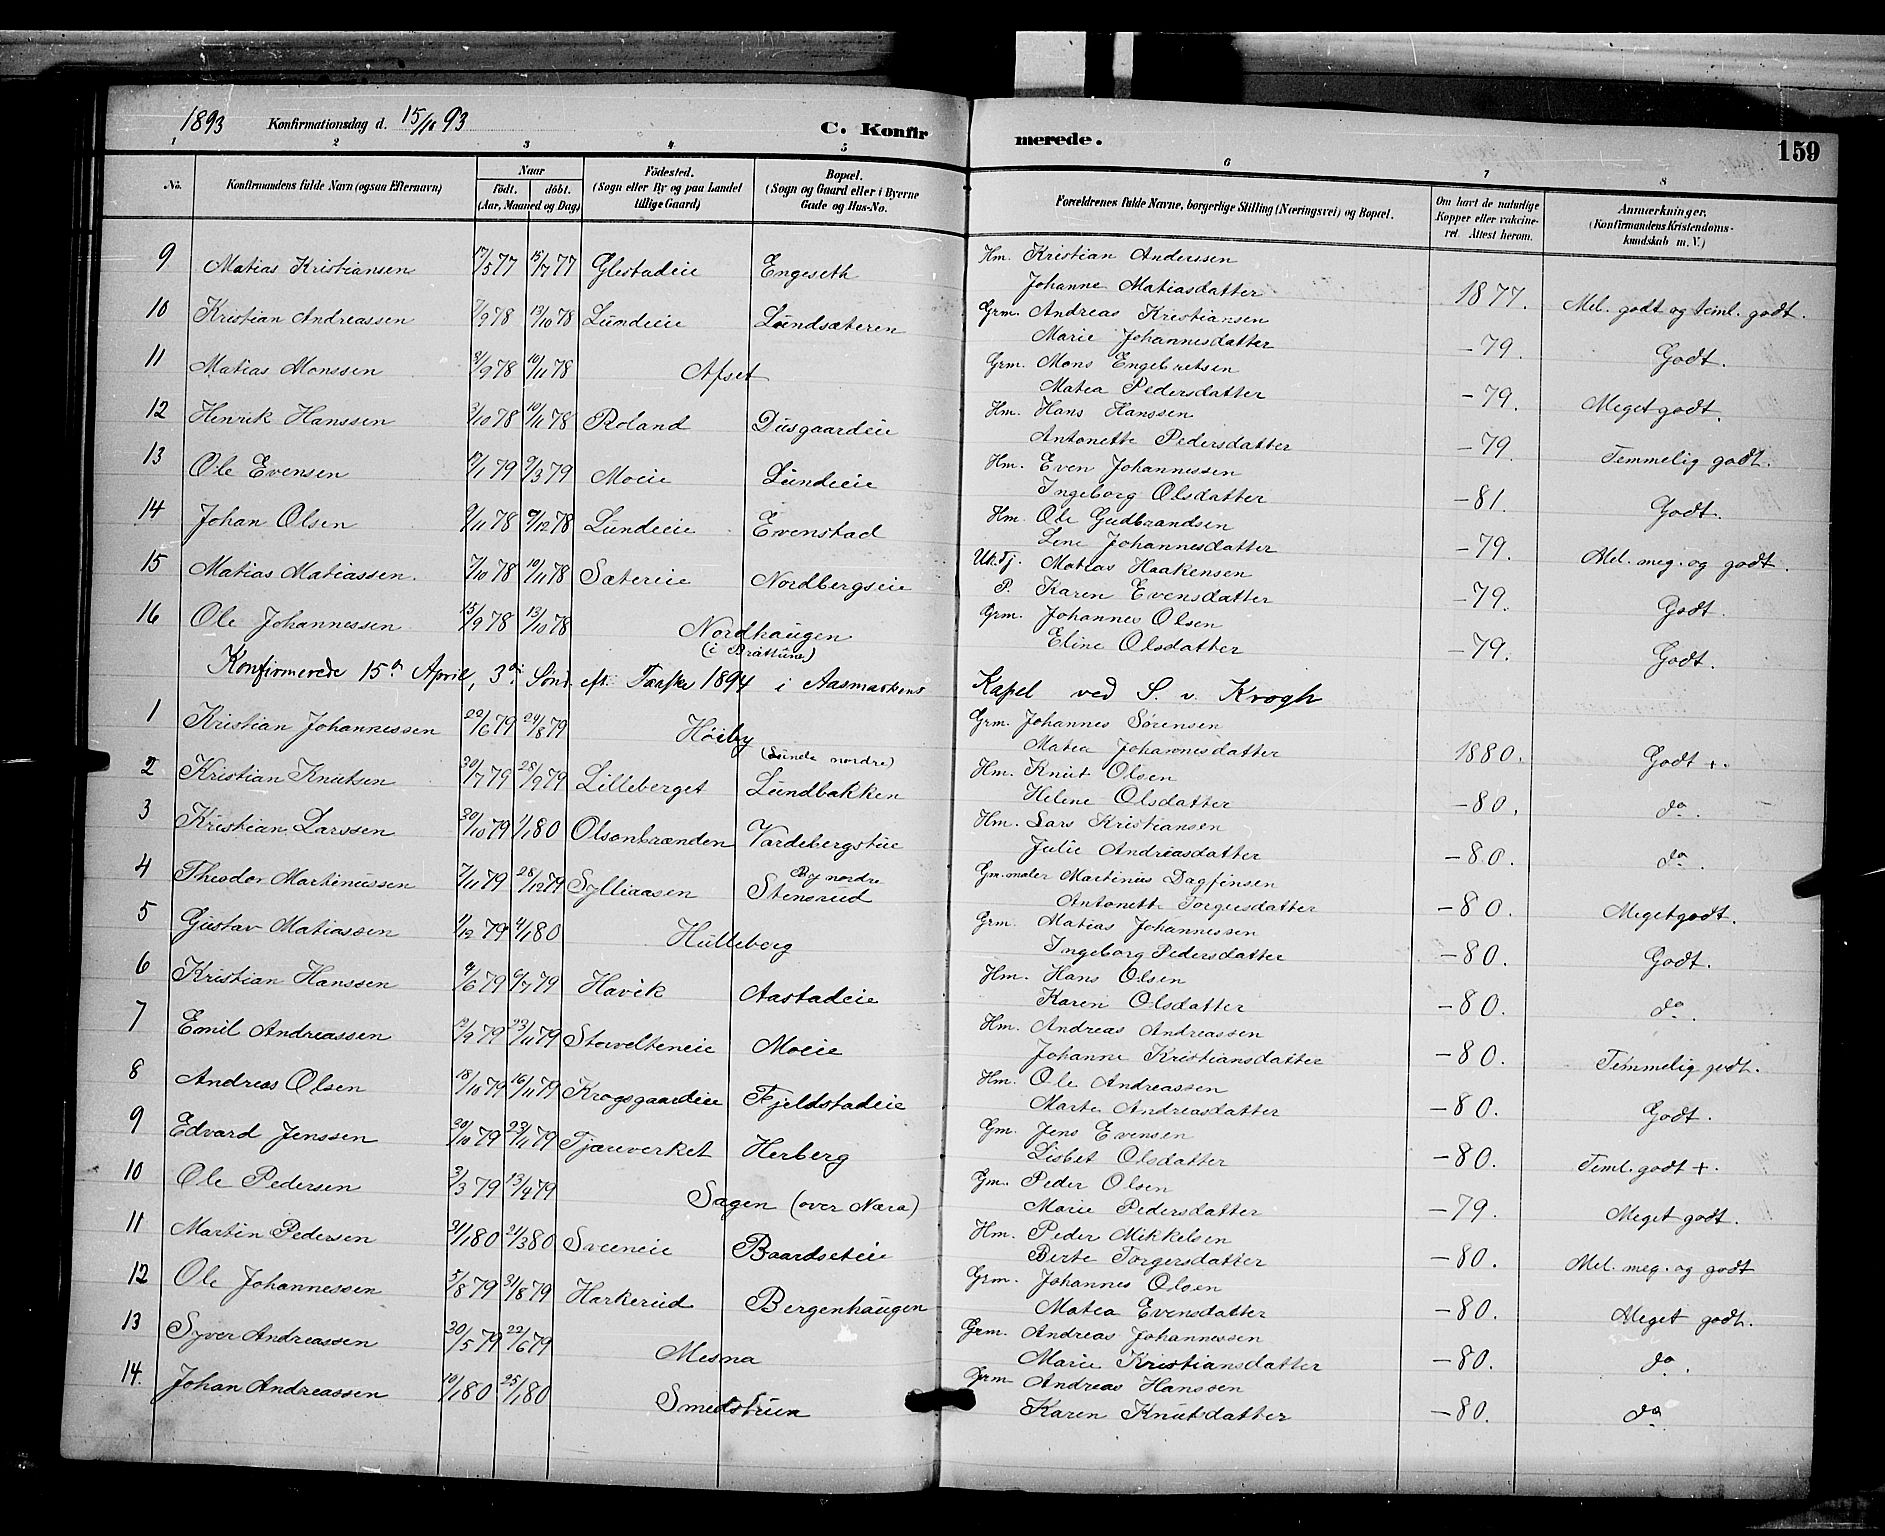 1893 Konfirmationsdag d. 15/10 93 C. Konfirmerede. 159
1 2 3 4 5 6 7 8
No. Konfirmandens fulde Navn (ogsaa Efternavn) Naar født. døbt. (Aar, Maaned og Dag) Fødested. (Sogn eller By og paa Landet tillige Gaard) Bopæl. (Sogn og Gaard eller i Byerne Gade og Hus-No. Forældrenes fulde Navne, borgerlige Stilling (Næringsvei) og Bopæl. Om havt de naturlige Kopper eller vakcineret. Attest herom. Anmærkninger. (Konfirmandens Kristendomskundskab m. V.)
9 Matias Kristiansen 17/5 77 15/7 77 Glestadeie Engeseth Hm. Kristian Anderssen
Johanne Matiasdatter 1877. Mel. godt og teml. godt.
10 Kristian Andreassen 7/9 78 13/10 78 Lundeie Lundsæteren Grm. Andreas Kristiansen
Marie Johannesdatter -79. Godt.
11 Matias Monssen 8/9 78 10/11 78 Afset Grm. Mons Engebretsen
Matea Pedersdatter -79. Meget godt.
12 Henrik Hanssen 3/10 78 10/11 78 Roland Dusgaardeie Hm. Hans Hanssen
Antonette Pedersdatter -79. Temmelig godt.
13 Ole Evensen 17/1 79 9/3 79 Moeie Lundeie Hm. Even Johannessen
Ingeborg Olsdatter -81. Godt.
14 Johan Olsen 9/11 78 9/12 78 Lundeie Evenstad Hm. Ole Gudbrandsen
Lene Johannesdatter -79. Mel. meg. og godt.
15 Matias Matiassen. 7/10 78 10/11 78 Sætereie Nordbergseie Uk. Tj. Matias Haakensen
P. Karen Evensdatter -79. Godt.
16 Ole Johannessen 15/9 78 13/10 78 Nordhaugen (i Brøttum) Grm. Johannes Olsen
Eline Olsdatter -79. Godt.
Konfirmerede 15de April, 3di Sønd. eft. Paaske 1894 i Aasmarkens Kapel ved S. v. Krogh
1 Kristian Johannessen 22/6 79 24/8 79 Høiby Grm. Johannes Sørensen
Matea Johannesdatter 1880. Godt +.
2 Kristian Knutsen 30/7 79 28/9 79 Lilleberget (Lunde nordre) Lundbakken Hm. Knut Olsen
Helene Olsdatter -80. do.
3 Kristian Larssen 30/10 79 1/1 80 Olsonbrænden Vardebergstue Hm. Lars Kristiansen
Julie Andreasdatter -80. do.
4 Theodor Martinussen 7/11 79 28/12 79 Sylliaasen By nordre Stensrud Gm. maler Martinus Dagfinsen
Antonette Torgersdatter -80. Meget godt.
5 Gustav Matiassen 1/12 79 4/1 80 Hulleborg Grm. Matias Johannessen
Ingeborg Pedersdatter -80. Godt.
6 Kristian Hanssen 4/6 79 6/7 79 Havik Aastadeie Hm. Hans Olsen
Karen Olsdatter -80. do.
7 Emil Andreassen 12/9 79 23/11 79 Stovelteneie Moeie Hm. Andreas Andreassen
Johanne Kristiansdatter -80. Temmelig godt.
8 Andreas Olsen 18/10 79 16/11 79 Krogsgaardeie Fjeldstadeie Hm. Ole Andreassen
Marte Andreasdatter -80. Godt.
9 Edvard Jenssen 30/10 79 23/11 79 Tjæreverket Herberg Gm. Jens Evensen
Lisbet Olsdatter -80. Teml. godt +.
10 Ole Pedersen 3/3 79 13/4 79 Sagen (over Næra) Gm. Peder Olsen
Marie Pedersdatter -79. Meget godt.
11 Martin Pedersen 31/1 80 21/3 80 Sveeneie Baardseteie Hm. Peder Mikkelsen
Berte Torgersdatter -80. Mel. meg. og godt
12 Ole Johannessen 5/8 79 31/8 79 Harkerud Bergenhaugen Grm. Johannes Olsen
Matea Evensdatter -80. Meget godt.
13 Syver Andreassen 20/5 79 22/6 79 Mesna Grm. Andreas Johannessen
Marie Kristiansdatter -80. do.
14. Johan Andreassen 10/1 80. 25/1 80 Smedstuen Grm Andreas Hanssen
Karen Knutsdatter -80. do.